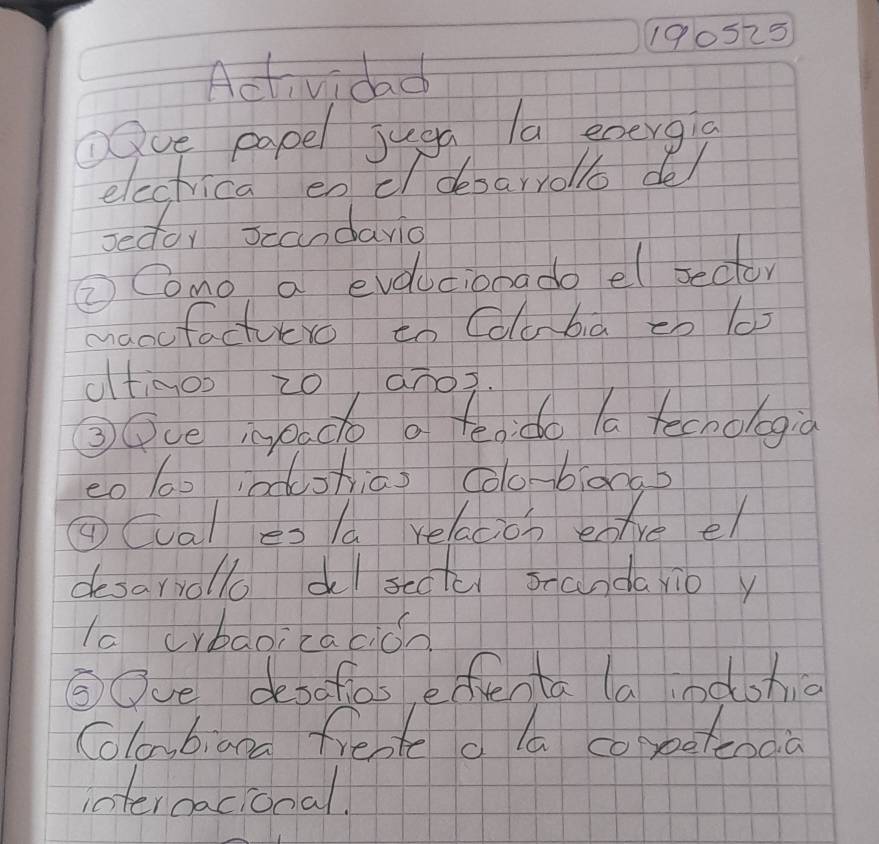 190525
Actividad
① Que papel juega la energia
electrica en el desarrollo del
sector secundario
② Como a evolucionado el sector
manufacturero en Colombia en los
ultimos 20 años.
③ Que impacto a tenido la tecnologia
en las industrias Colombianas
④ Cual es la relación entre el
desarrollo del sector secundario y
la urbanización.
⑤ Que desafios enfrenta la industria
Colombiana frente a la competencia
internacional.